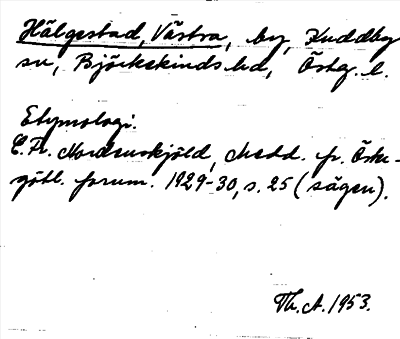 Hälgestad, Västra, by, Kuddby
sn, Björkekinds hd, Östg. l.
Etymologi.
C. Fr. Nordenskjöld, Medd. fr. Öster-
götl. fornm. 1929-30, s. 25 (sägen).
Th. A. 1953.